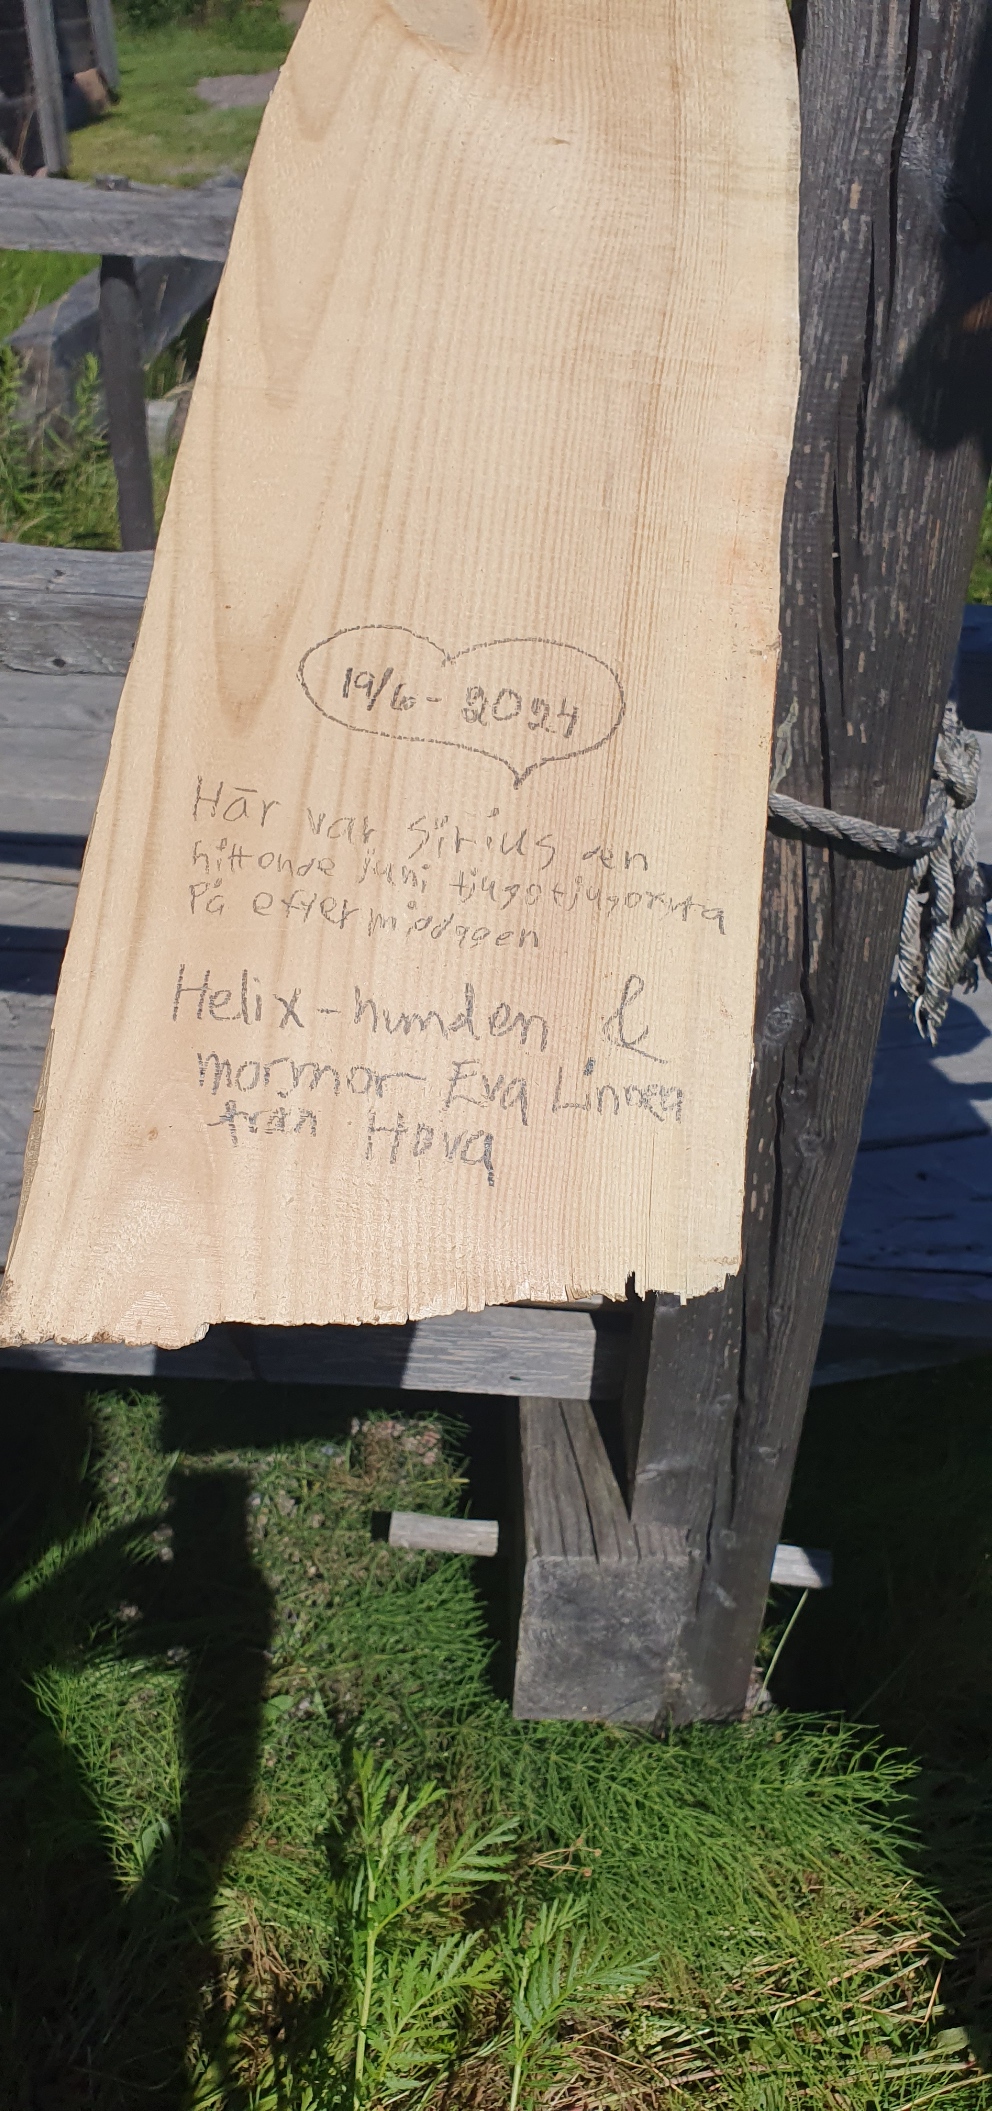 19/6 - 2024
Här var Sirius den
nittonde juni tjugotjugofyra
På eftermiddagen
Helix-hunden &
mormor Eva Linnea
från Hova